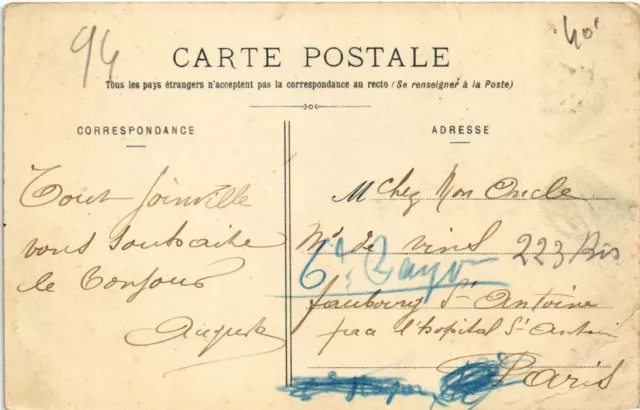 94
40
CARTE POSTALE
Tous les pays étrangers n'acceptent pas la correspondance au recto (Se renseigner à la Poste)
CORRESPONDANCE
Tout Joinville
vous souhaite
le bonjour
Auguste
ADRESSE
M Chez Mon Oncle
Md de vins 223 Bis
faubourg St Antoine
face l'hopital St Antoine
Paris